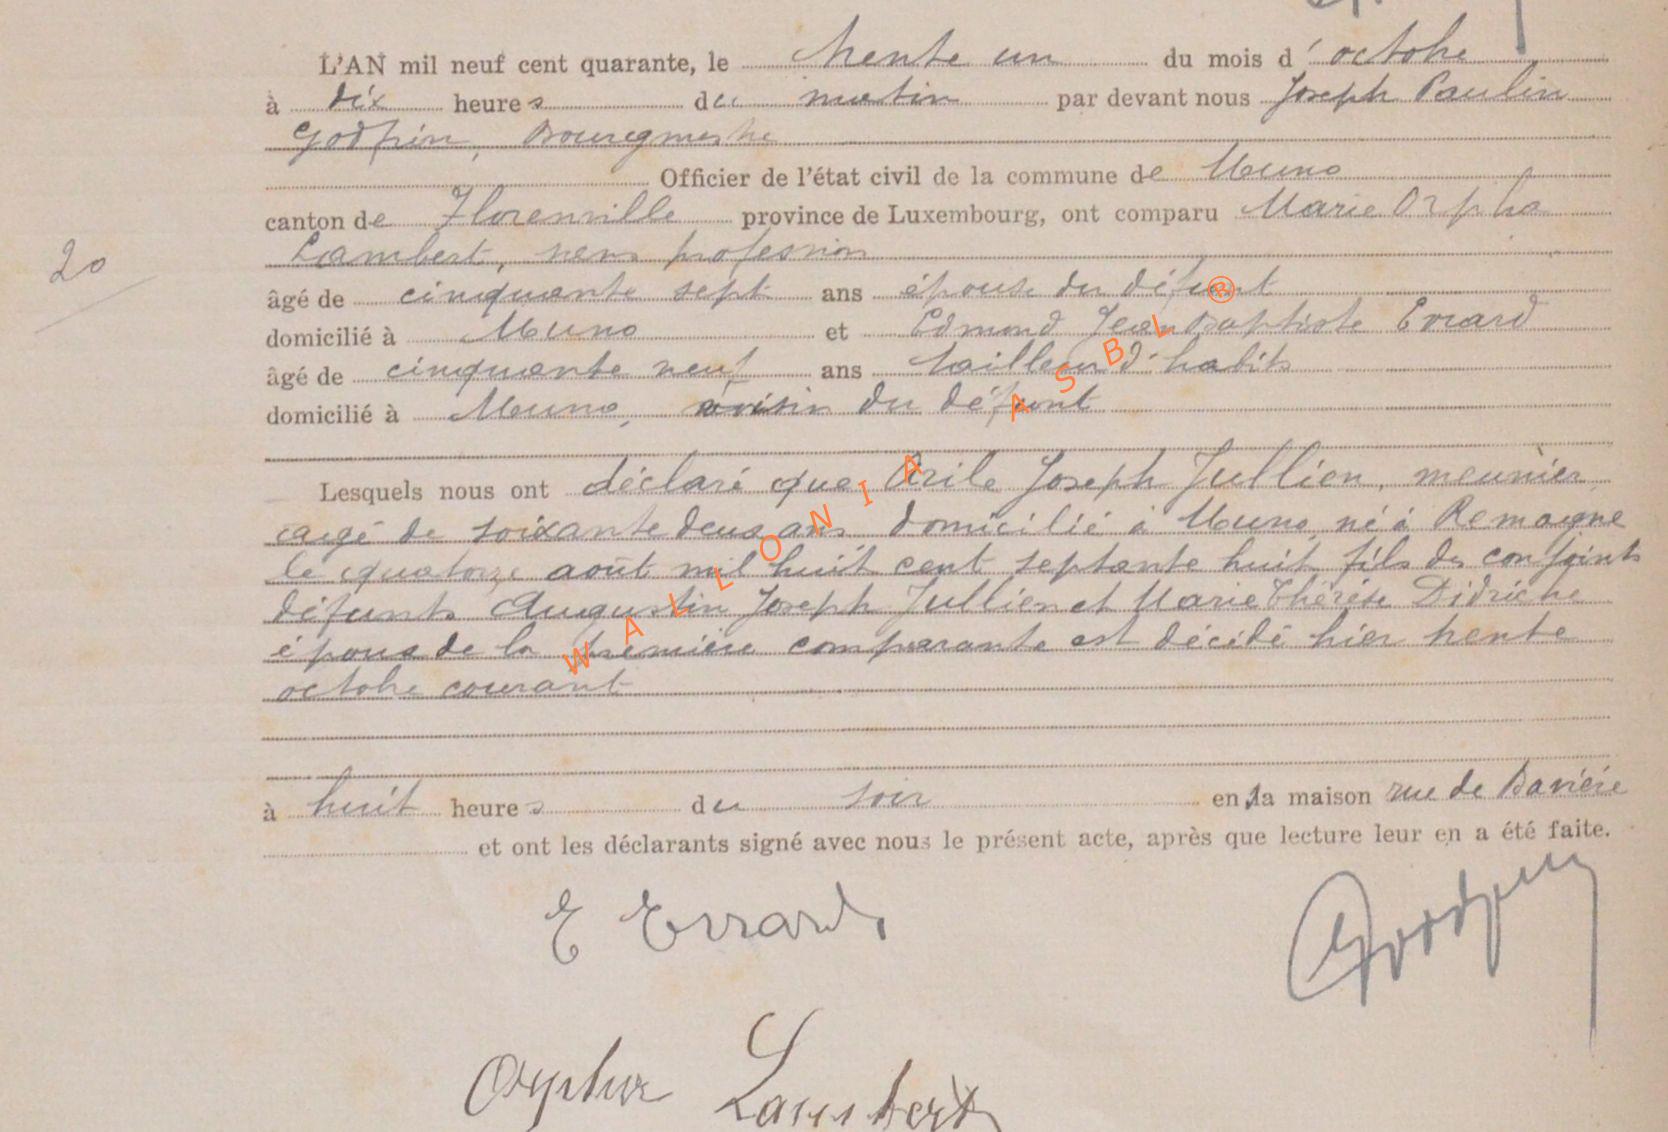 L'AN mil neuf cent quarante, le trente un du mois d'octobre
à dix heures du matin par devant nous Joseph Paulin
Godfrin, Bourgmestre
Officier de l'état civil de la commune de Muno
canton de Florenville province de Luxembourg, ont comparu Marie Orpha
Lambert, sans profession
20
âgé de cinquante sept ans épouse du défunt
domicilié à Muno et Edmond Jean Baptiste Evrard
âgé de cinquante neuf ans tailleur d'habits
domicilié à Muno, voisin du défunt
Lesquels nous ont déclaré que Joseph Jullien, meunier,
agé de soixante deux ans domicilié à Muno, né à Remagne
le quatorze août mil huit cent septante huit fils des conjoints
défunts Augustin Joseph Jullien et Marie Thérèse Didriche
époux de la première comparante est décédé hier trente
octobre courant
à huit heures du soir en la maison rue de Bavière
et ont les déclarants signé avec nous le présent acte, après que lecture leur en a été faite.
E Evrard
Godfrin
Orpha Lambert
WALLONIA ASBL ®